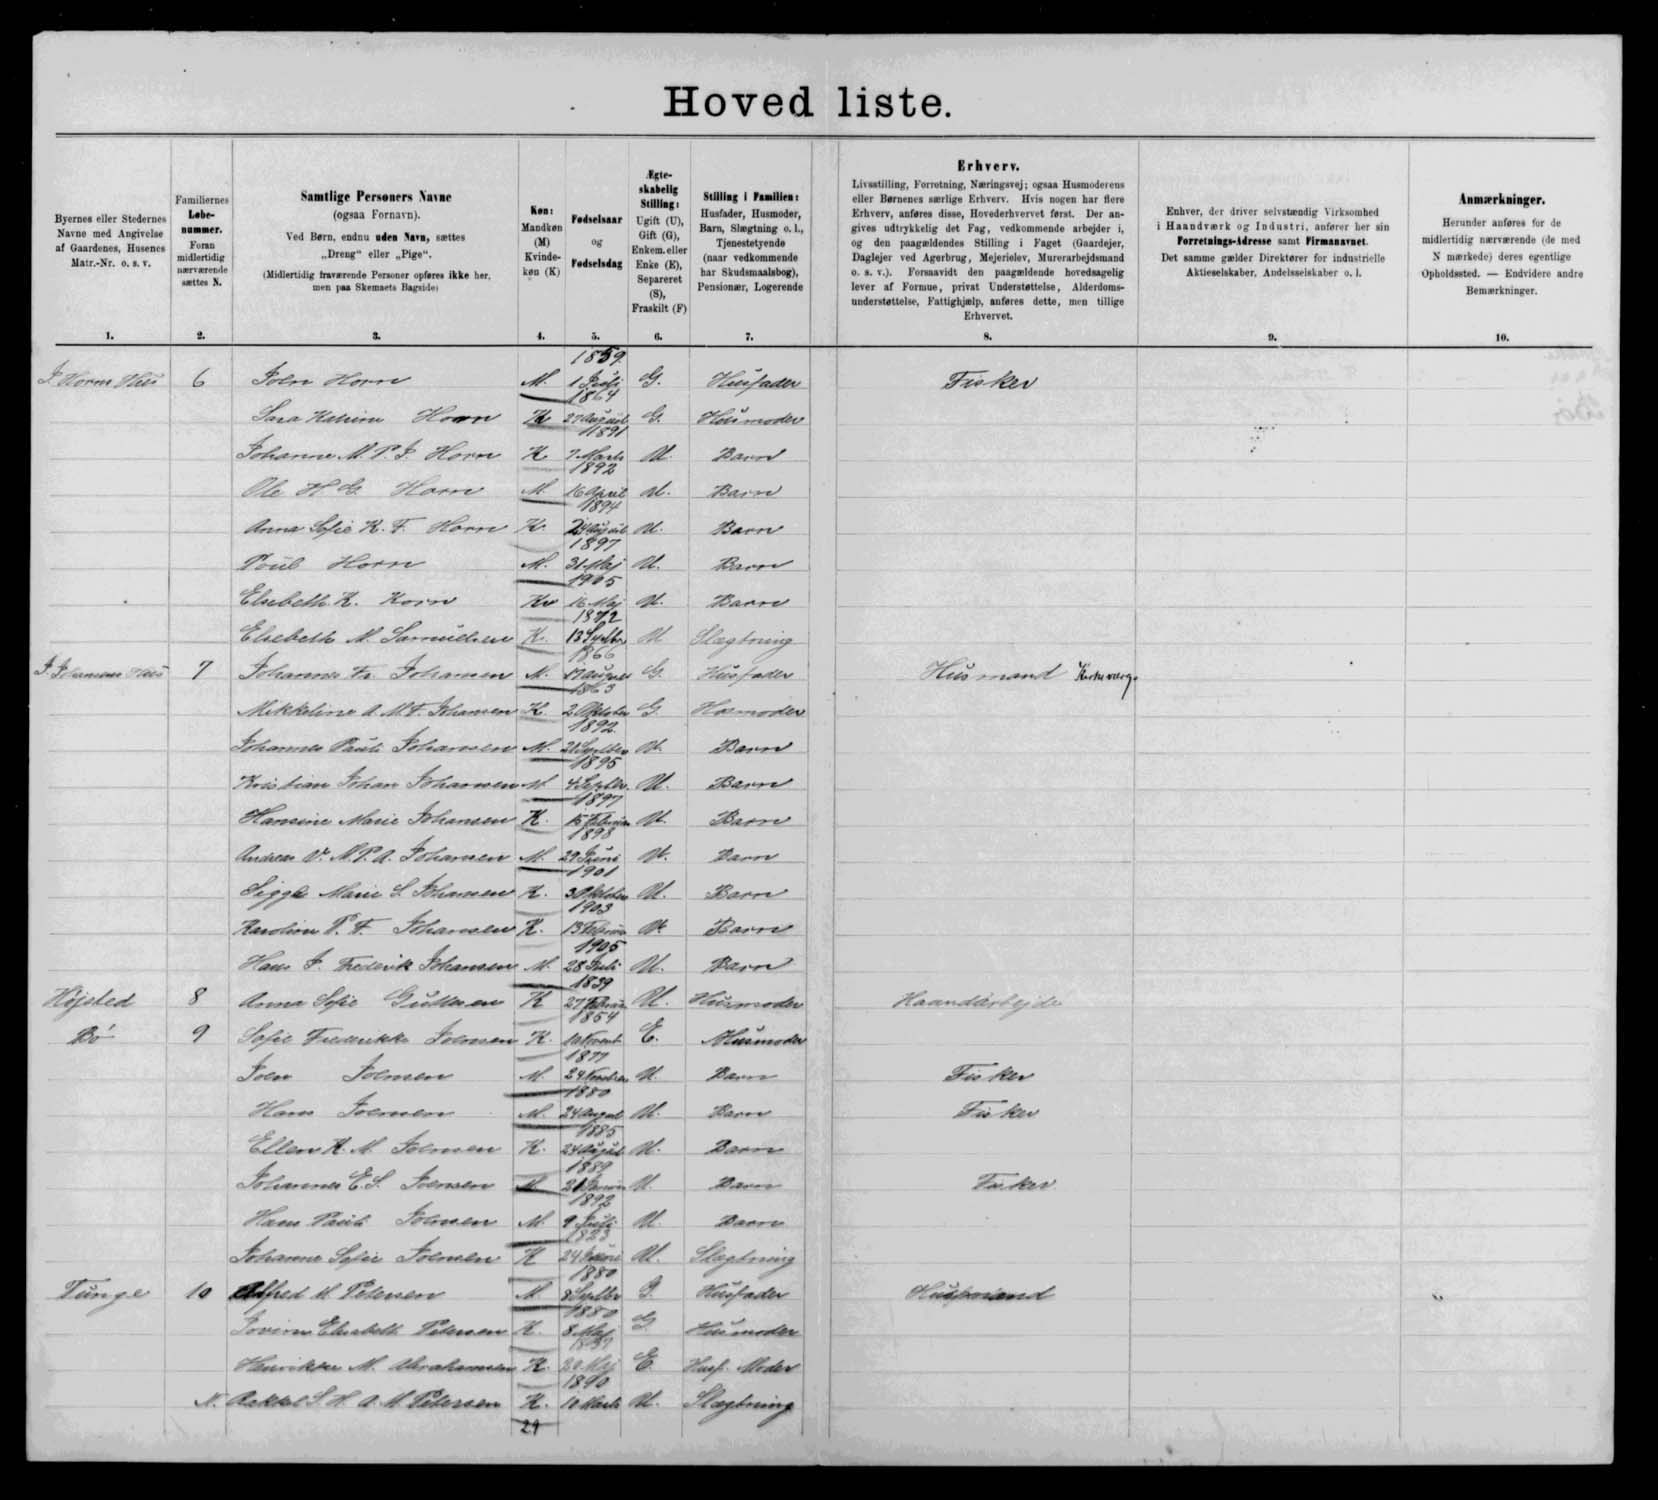 Hoved liste.
Byernes eller Stedernes Navne med Angivelse af Gaardenes, Husenes Matr.-Nr. o. s. v.
Familiernes Løbenummer. Foran midlertidig nærværende sættes N.
Samtlige Personers Navne
(ogsaa Fornavn).
Ved Børn, endnu uden Navn, sættes
„Dreng" eller „Pige".
(Midlertidig fraværende Personer opføres ikke her,
men paa Skemaets Bagside)
Køn: Mandkøn (M) Kvindekøn (K)
Fødselsaar og Fødselsdag
Ægteskabelig Stilling: Ugift (U), Gift (G), Enkem. eller Enke (E), Separeret (S), Fraskilt (F)
Stilling i Familien:
Husfader, Husmoder,
Barn, Slægtning o. l.,
Tjenestetyende
(naar vedkommende
har Skudsmaalsbog),
Pensionær, Logerende
Erhverv.
Livsstilling, Forretning, Næringsvej; ogsaa Husmoderens
eller Børnenes særlige Erhverv. Hvis nogen har flere
Erhverv, anføres disse, Hovederhvervet først. Der an-
gives udtrykkelig det Fag, vedkommende arbejder i,
og den paagældendes Stilling i Faget (Gaardejer,
Daglejer ved Agerbrug, Mejerielev, Murerarbejdsmand
o. s. v.). Forsaavidt den paagældende hovedsagelig
lever af Formue, privat Understøttelse, Alderdoms-
understøttelse, Fattighjælp, anføres dette, men tillige
Erhvervet.
Enhver, der driver selvstændig Virksomhed
i Haandværk og Industri, anfører her sin
Forretnings-Adresse samt Firmanavnet.
Det samme gælder Direktører for industrielle
Aktieselskaber, Andelsselskaber o. l.
Anmærkninger.
Herunder anføres for de
midlertidig nærværende (de med
N mærkede) deres egentlige
Opholdssted. — Endvidere andre
Bemærkninger.
1. 2. 3. 4. 5. 6. 7. 8. 9. 10.
J. Horns Hus 6 Joen Horn M. 1859 1 Juli G. Husfader Fisker
Sara Katrine Horn K 1864 27 August G. Husmoder
Johanne M. P. J. Horn K 1891 7 Marts U. Barn
Ole H G. Horn M. 1892 16 April U. Barn
Anna Sofie K. F. Horn K. 1894 24 August U. Barn
Poul Horn M. 1897 31 Maj U. Barn
Elsebeth K. Horn K 1905 16 Maj U. Barn
Elsebeth M. Samuelsen K. 1872 13 Septbr U Slægtning
J. Johansens Hus 7 Johannes Fr. Johansen M. 1866 17 August G. Husfader Husmand Kirkeværge
Mikkeline A. M. F. Johansen K. 1863 2 Oktober G. Husmoder
Johannes Pauli Johansen M. 1892 21 Septber U. Barn
Kristian Johan Johansen M 1895 4 Septbr. U. Barn
Hansine Marie Johansen K. 1897 15 Februar U. Barn
Andreas V. M. P. A. Johansen M. 1898 29 Juni U. Barn
Sigga Marie S. Johansen K. 1901 3 Oktober U. Barn
Karoline P. F. Johansen K. 1903 13 Februar U. Barn
Hans J. Frederik Johansen M. 1905 28 Juli U. Barn
Højsted 8 Anna Sofie K 1839 27 Februar U. Husmoder Haandarbejde
Bø 9 Sofie Frederikke Joensen K. 1854 E. Husmoder
Joen Joensen M. 1877 24 U. Barn Fisker
Hans Joensen M. 1880 24 August U. Barn Fisker
Ellen K. M. Joensen K. 1885 24 August U. Barn
Johannes E. S. Joensen M. 1889 21 Januar U. Barn Fisker
Hans Pauli Joensen M. 1892 9 Juli U. Barn
Johanne Sofie Joensen K 1823 24 U. Slægtning
Tunge 10 Alfred M Petersen M. 1880 8 Septbr G. Husfader Husmand
Elisabeth Petersen K. 1880 8 Maj G. Husmoder
Henrikke M. Abrahamsen K. 20 Maj E. Husf. Moder
N. Rakkel S. H. A. M. Petersen K. 1890 10 Marts U. Slægtning
29